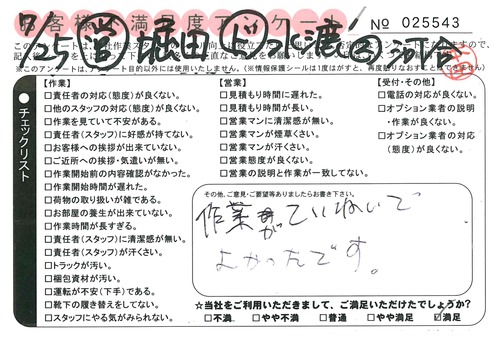 お客様満足度アンケート
7/25 ㊡ 堀田 ド 水漉 回 河合
№ 025543
※このアンケートは、アンケート目的以外には使用いたしません。(※情報保護シールは1度はがすと、再度貼りなおすことはできません)
チェックリスト
【作業】
□責任者の対応(態度)が良くない。
□他のスタッフの対応(態度)が良くない。
□作業を見ていて不安がある。
□責任者(スタッフ)に好感が持てない。
□お客様への挨拶が出来ていない。
□ご近所への挨拶・気遣いが無い。
□作業開始前の内容確認がなかった。
□作業開始時間が遅れた。
□荷物の取り扱いが雑である。
□お部屋の養生が出来ていない。
□作業時間が長すぎる。
□責任者(スタッフ)に清潔感が無い。
□責任者(スタッフ)が汗くさい。
□トラックが汚い。
□梱包資材が汚い。
□運転が不安(下手)である。
□靴下の履き替えをしてない。
□スタッフにやる気がみられない。
【営業】
□見積もり時間に遅れた。
□見積もり時間が長い。
□営業マンに清潔感が無い。
□営業マンが煙草くさい。
□営業マンが汗くさい。
□営業態度が良くない。
□営業の説明と作業が一致してない。
【受付・その他】
□電話の対応が良くない。
□オプション業者の説明
・作業が良くない。
□オプション業者の対応
(態度)が良くない。
その他、ご意見・ご要望等ありましたらお書き下さい。
作業がていねいで
よかったです。
☆当社をご利用いただきまして、ご満足いただけたでしょうか?
□不満 □やや不満 □普通 □やや満足 ☑満足